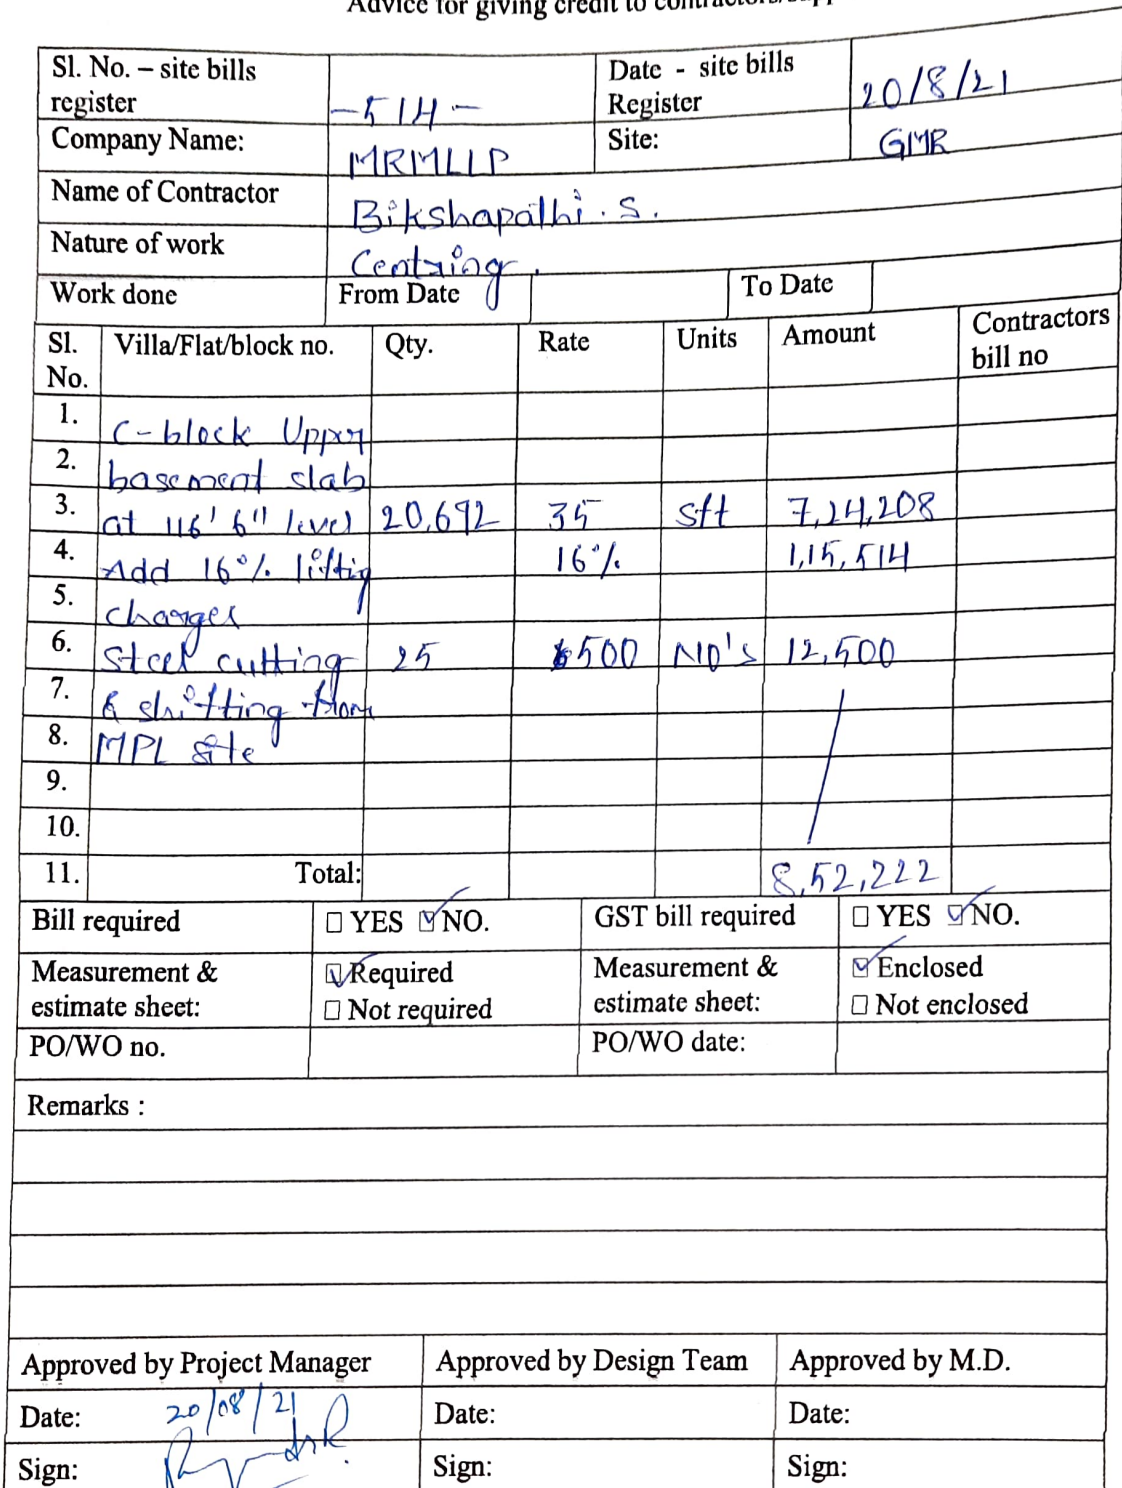 Advice for giving credit to contractors/supp
Sl. No. – site bills register -514- Date - site bills Register 20/8/21
Company Name: MRMLLP Site: GMR
Name of Contractor Bikshapathi. S.
Nature of work Centring.
Work done From Date To Date
Sl. No. Villa/Flat/block no. Qty. Rate Units Amount Contractors bill no
1. C-block Upper
2. basement slab
3. at 116' 6" level 20,692 35 sft 7,24,208
4. Add 16% liftig 16% 1,15,514
5. charges
6. Steel cutting 25 500 NO's 12,500
7. & shifting from
8. MPL site
9.
10.
11. Total: 8,52,222
Bill required □ YES ☑ NO. GST bill required □ YES ☑ NO.
Measurement & estimate sheet: ☑ Required □ Not required Measurement & estimate sheet: ☑ Enclosed □ Not enclosed
PO/WO no. PO/WO date:
Remarks :
Approved by Project Manager Approved by Design Team Approved by M.D.
Date: 20/08/21 Date: Date:
Sign: Sign: Sign: